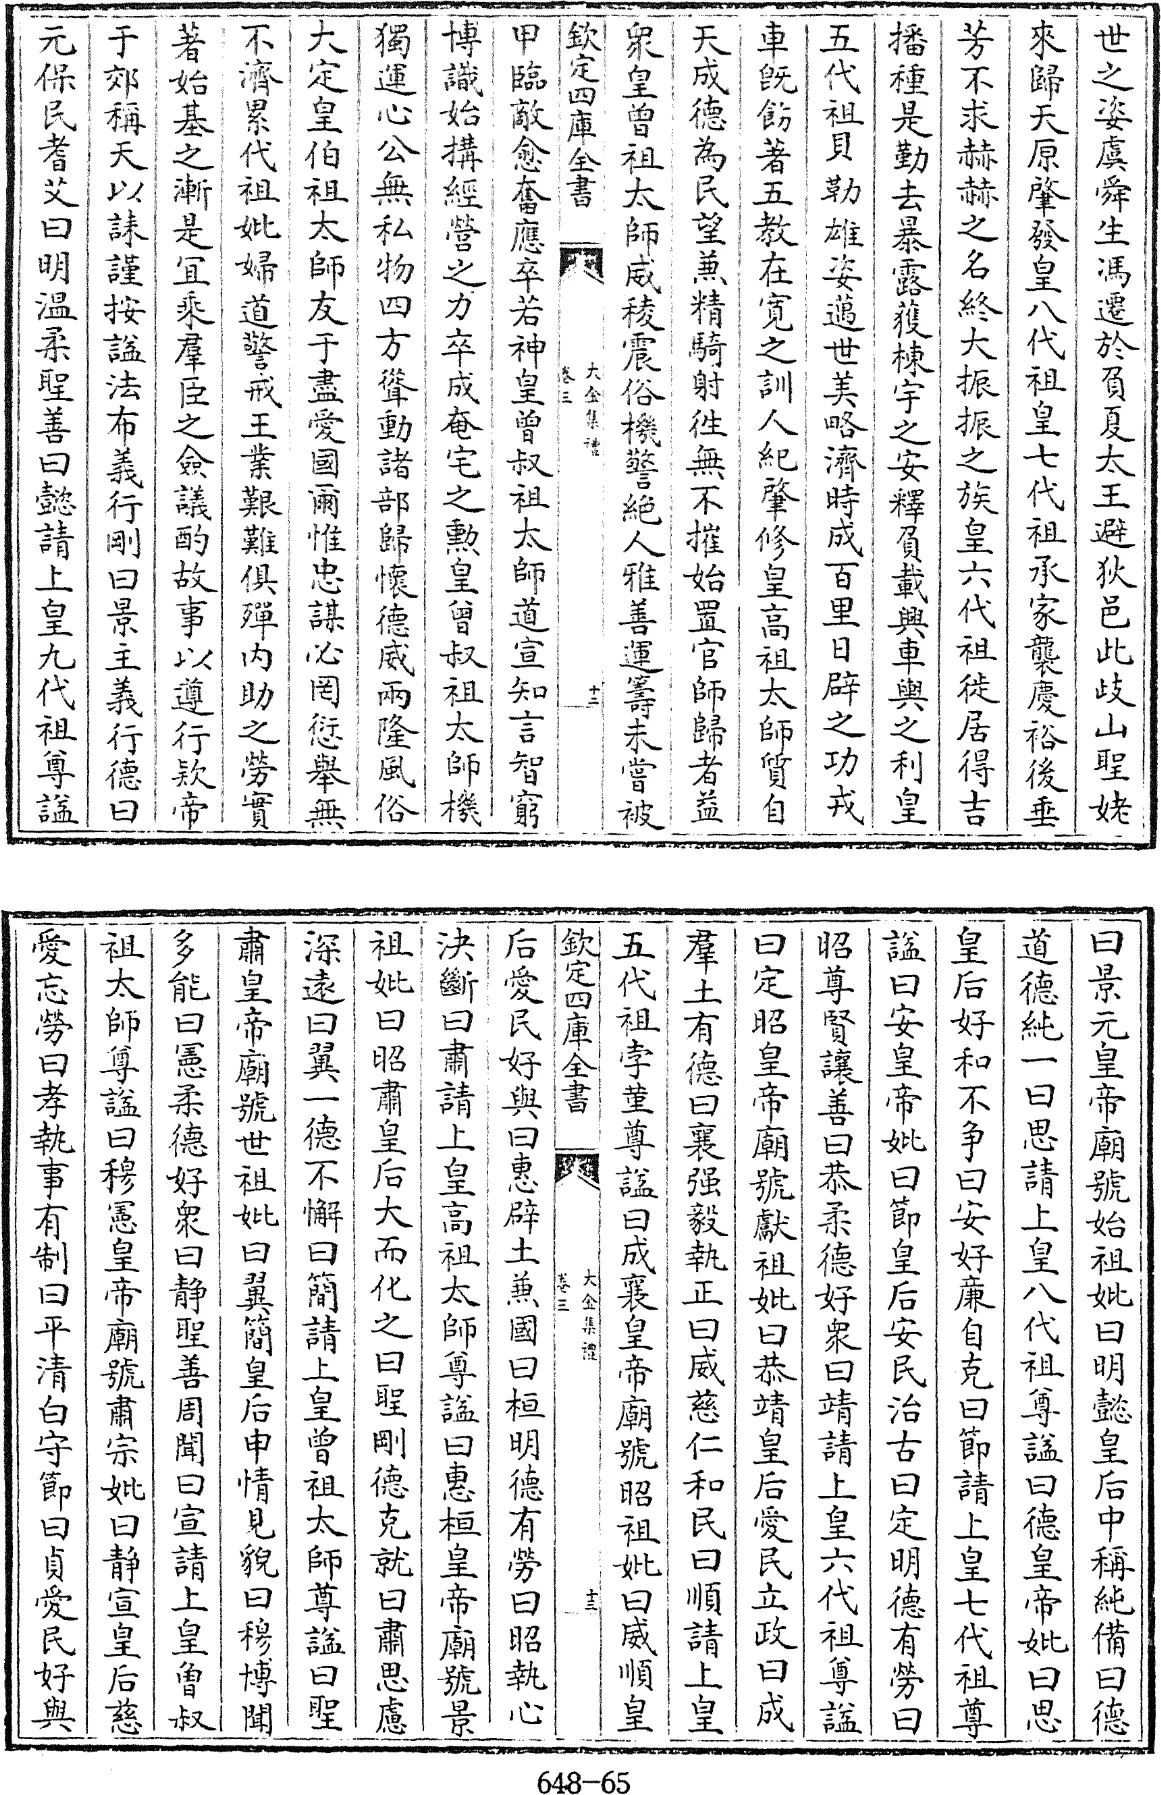 世之姿虞舜生馮遷於負夏太王避狄邑此歧山聖姥
來歸天原肇發皇八代祖皇七代祖承家襲慶裕後垂
芳不求赫赫之名終大振振之族皇六代祖徙居得吉
播種是勤去暴露獲棟宇之安釋負載興車輿之利皇
五代祖貝勒雄姿邁世美略濟時成百里日辟之功戎
車旣飭著五教在寛之訓人紀肇修皇髙祖太師質自
天成德為民望兼精騎射徃無不摧始置官師歸者益
衆皇曾祖太師威稜震俗機警絶人雅善運籌未嘗被
欽定四庫全書
大金集禮
卷三
十三
甲臨敵愈奮應卒若神皇曾叔祖太師道宣知言智窮
博識始搆經營之力卒成奄宅之勲皇曾叔祖太師機
獨運心公無私物四方聳動諸部歸懷德威兩隆風俗
大定皇伯祖太師友于盡愛國爾惟忠謀必罔愆舉無
不濟累代祖妣婦道警戒王業艱難俱殫内助之勞實
著始基之漸是冝乘羣臣之僉議酌故事以遵行欵帝
于郊稱天以誄謹按諡法布義行剛曰景主義行德曰
元保民耆艾曰明溫柔聖善曰懿請上皇九代祖尊諡
曰景元皇帝廟號始祖妣曰明懿皇后中稱純備曰德
道德純一曰思請上皇八代祖尊諡曰德皇帝妣曰思
皇后好和不争曰安好亷自克曰節請上皇七代祖尊
諡曰安皇帝妣曰節皇后安民治古曰定明德有勞曰
昭尊賢讓善曰恭柔德好衆曰靖請上皇六代祖尊諡
曰定昭皇帝廟號獻祖妣曰恭靖皇后愛民立政曰成
羣土有德曰襄强毅執正曰威慈仁和民曰順請上皇
五代祖孛堇尊諡曰成襄皇帝廟號昭祖妣曰威順皇
欽定四庫全書
大金集禮
卷三
十三
后愛民好與曰惠辟土兼國曰桓明德有勞曰昭執心
決斷曰肅請上皇髙祖太師尊諡曰惠桓皇帝廟號景
祖妣曰昭肅皇后大而化之曰聖剛德克就曰肅思慮
深遠曰翼一德不懈曰簡請上皇曾祖太師尊諡曰聖
肅皇帝廟號世祖妣曰翼簡皇后申情見貌曰穆博聞
多能曰憲柔德好衆曰静聖善周聞曰宣請上皇曾叔
祖太師尊諡曰穆憲皇帝廟號肅宗妣曰静宣皇后慈
愛忘勞曰孝執事有制曰平清白守節曰貞愛民好與
648-65